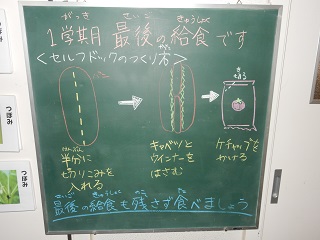 がっき さいご きゅうしょく
1学期 最後の給食です
＜セルフドックのつくり方＞
きゅうしょく
半分に
切りこみを
入れる
キャベツと
ウインナーを
はさむ
ケチャップを
かける
さいご きゅうしょく のこ た
最後の給食も残さず食べましょう
つぼみ
つぼみ